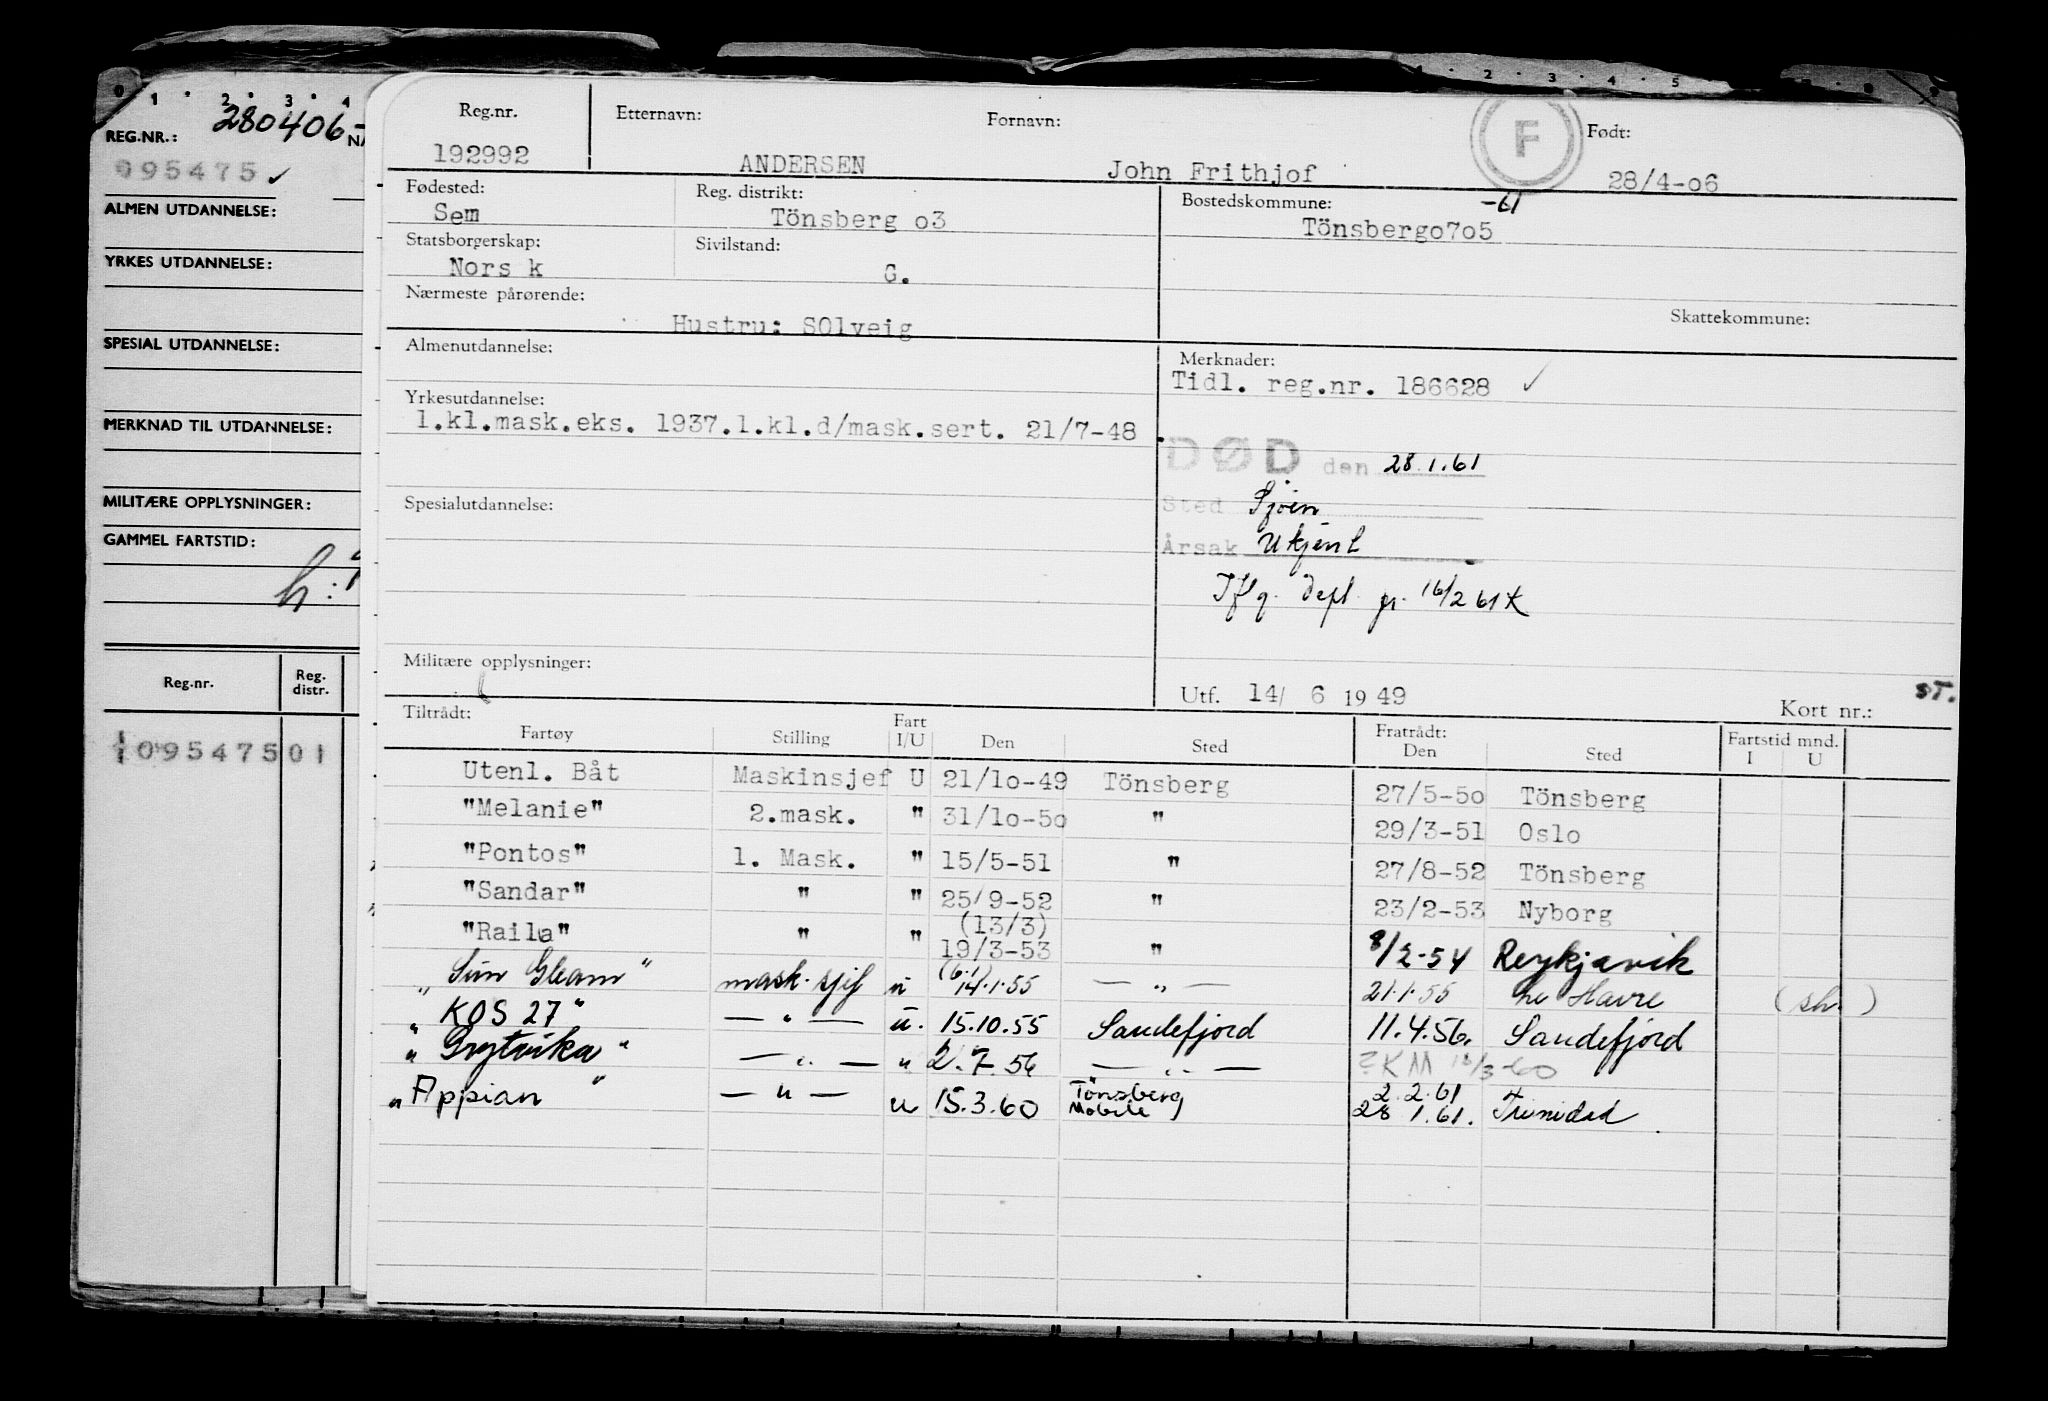 0 1 2 3 4
280406-
REG.NR.: NA
095475 ✓
ALMEN UTDANNELSE:
YRKES UTDANNELSE:
SPESIAL UTDANNELSE:
MERKNAD TIL UTDANNELSE:
MILITÆRE OPPLYSNINGER:
GAMMEL FARTSTID:
h:
Reg.nr. Reg. distr.
095475 01
1 2 3 4 5
Reg.nr. Etternavn: Fornavn: F Født:
192992 ANDERSEN John Frithjof 28/4-06
Fødested: Reg. distrikt: Bostedskommune: -61
Sem Tönsberg o3 Tönsbergo7o5
Statsborgerskap: Sivilstand:
Nors k G.
Nærmeste pårørende: Skattekommune:
Hustru: SOlveig
Almenutdannelse: Merknader:
Tidl. reg.nr. 186628 ✓
Yrkesutdannelse:
1.kl.mask.eks. 1937.1.kl.d/mask.sert. 21/7-48
DØD den 28.1.61
Spesialutdannelse: Sted Sjøen
Årsak Ukjent
Iflg. dept. gr. 16/2 61 K
Militære opplysninger:
Utf. 14/ 6 1949 Kort nr.: ST.
Tiltrådt: Fart Fratrådt: Fartstid mnd.
Fartøy Stilling I/U Den Sted Den Sted I U
Utenl. Båt Maskinsjef U 21/1o-49 Tönsberg 27/5-5o Tönsberg
"Melanie" 2.mask. " 31/1o-5o " 29/3-51 Oslo
"Pontos" 1. Mask. " 15/5-51 " 27/8-52 Tönsberg
"Sandar" " " 25/9-52 " 23/2-53 Nyborg
(13/3)
"Raila" " " 19/3-53 " 8/2-54 Reykjavik
(6.1)
"Sun Gleam" mask.sjef u 14.1.55 — " — 21.1.55 Le Havre (sh.)
"KOS 27" — " — u. 15.10.55 Sandefjord 11.4.56. Sandefjord
"Grytvika" — " — u 2.7.56 — " — ?KM 18/3-60
"Appian" — " — u 15.3.60 Tönsberg Mobile 2.2.61 28 1.61. Trinidad